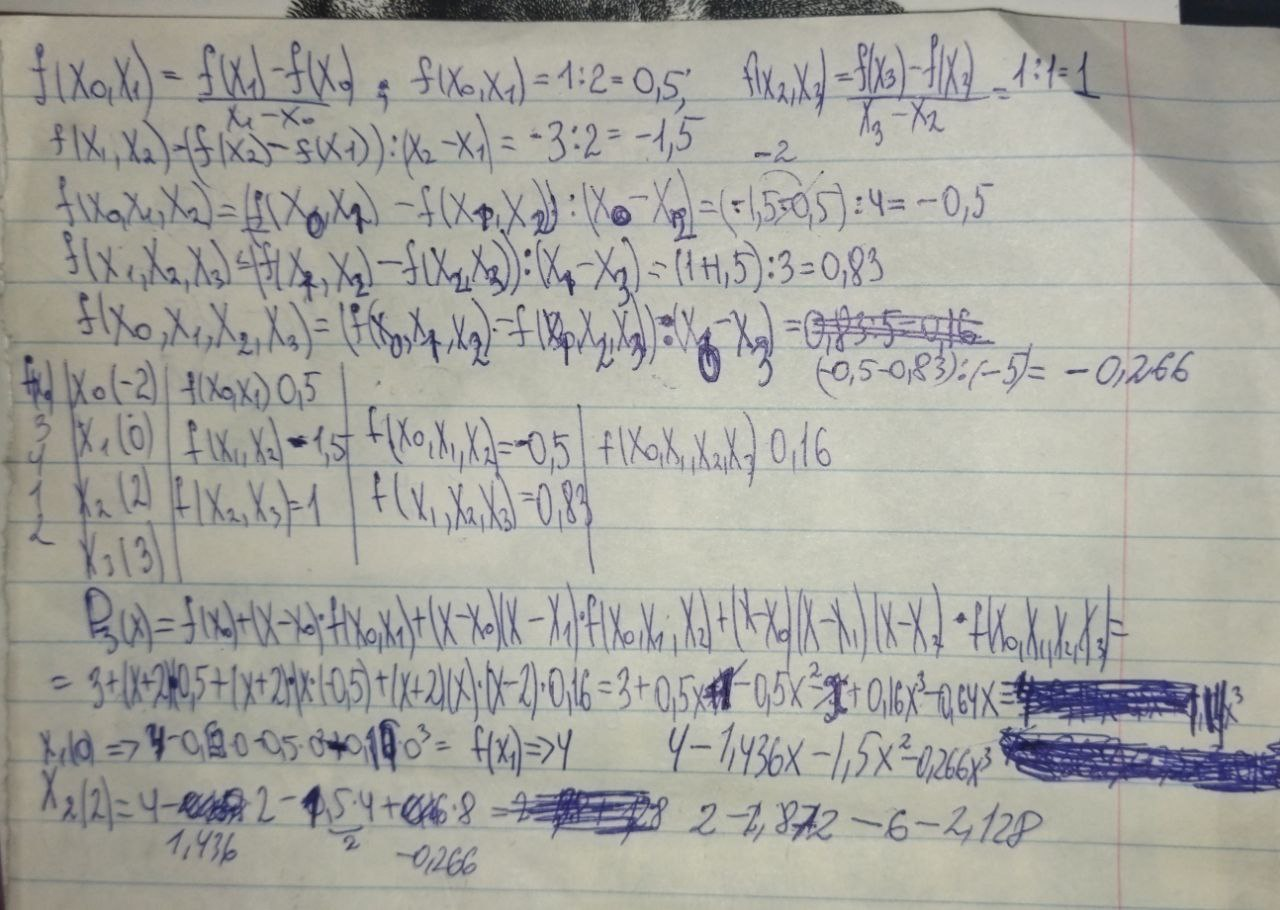 f(x₀,x₁) = (f(x₁)-f(x₀))/(x₁-x₀) ; f(x₀,x₁) = 1:2 = 0,5; f(x₂,x₃) = (f(x₃)-f(x₂))/(x₃-x₂) = 1:1=1
f(x₁,x₂)=(f(x₂)-f(x₁)):(x₂-x₁) = -3:2 = -1,5
-2
f(x₀,x₁,x₂)=(f(x₀,x₁) - f(x₁,x₂)):(x₀-x₂)=(-1,5-0,5):4= -0,5
f(x₁,x₂,x₃)=(f(x₁,x₂)-f(x₂,x₃)):(x₁-x₃)=(1+1,5):3=0,83
f(x₀,x₁,x₂,x₃)=(f(x₀,x₁,x₂)-f(x₁,x₂,x₃)):(x₀-x₃)=
(-0,5-0,83):(-5)= -0,266
x₀(-2) f(x₀,x₁) 0,5
3 x₁(0) f(x₁,x₂) -1,5 f(x₀,x₁,x₂)=-0,5 f(x₀,x₁,x₂,x₃) 0,16
4
1 x₂(2) f(x₂,x₃)=1 f(x₁,x₂,x₃)=0,83
2 x₃(3)
P₃(x)= f(x₀)+(x-x₀)·f(x₀,x₁)+(x-x₀)(x-x₁)·f(x₀,x₁,x₂)+(x-x₀)(x-x₁)(x-x₂)·f(x₀,x₁,x₂,x₃)=
= 3+(x+2)·0,5+(x+2)·x·(-0,5)+(x+2)(x)·(x-2)·0,16=3+0,5x+1-0,5x²-x+0,16x³-0,64x=
x₁(0) => 4-0·0-0,5·0+0,16·0³= f(x₁)=>4 4-1,436x-1,5x²-0,266x³
x₂(2)=4- 2- 1,5·4+ ·8 = 2 -2,872 -6 -2,128
1,436 2 -0,266